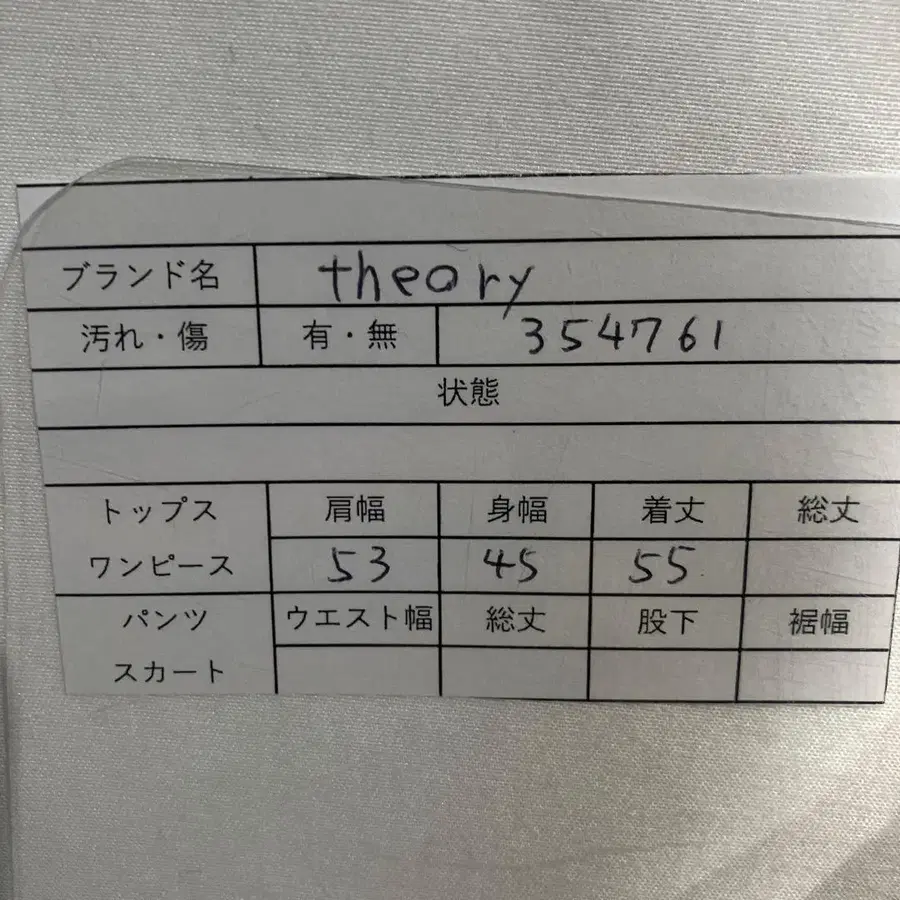 ブランド名 theory
汚れ・傷 有・無 354761
状態
トップス 肩幅 身幅 着丈 総丈
ワンピース 53 45 55
パンツ ウエスト幅 総丈 股下 裾幅
スカート